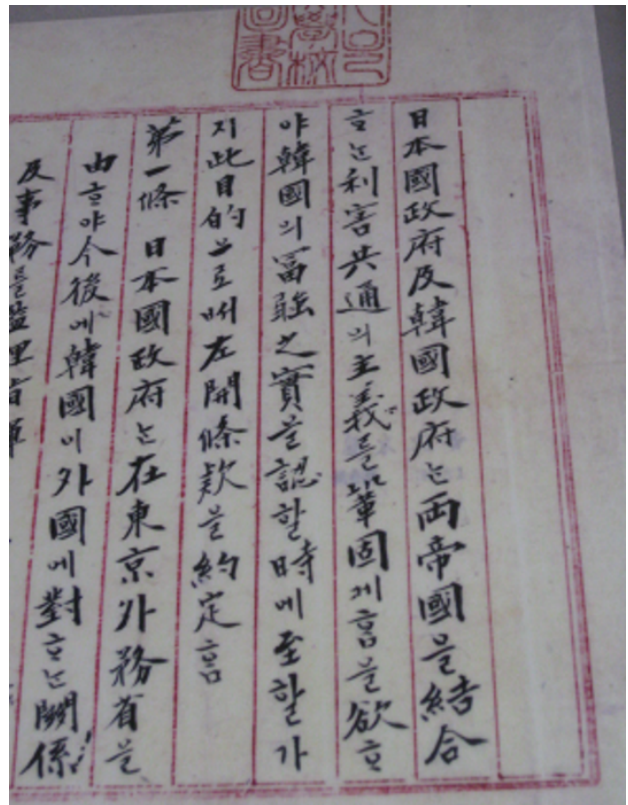 日本國政府及韓國政府는両帝國을結合
ᄒᆞ는利害共通의主義를鞏固케ᄒᆞᆷ을欲ᄒᆞ
야韓國의富强之實을認할時에至할가
지此目的으로ᄡᅥ左開條欵을約定ᄒᆞᆷ
第一條 日本國政府는在東京外務省을
由ᄒᆞ야今後에韓國이外國에對ᄒᆞ는關係
及事務를監理指揮